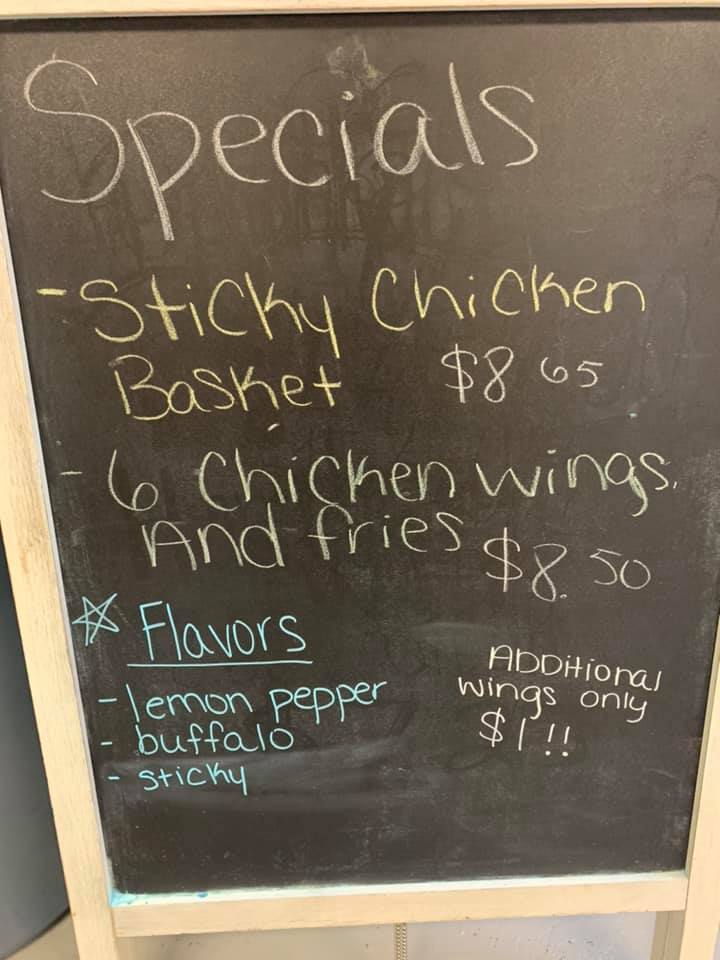 Specials
- Sticky Chicken
Basket $8 65
- 6 Chicken wings.
And fries $8.50
☆ Flavors
- lemon pepper
- buffalo
- sticky
ADDitional
wings only
$1!!